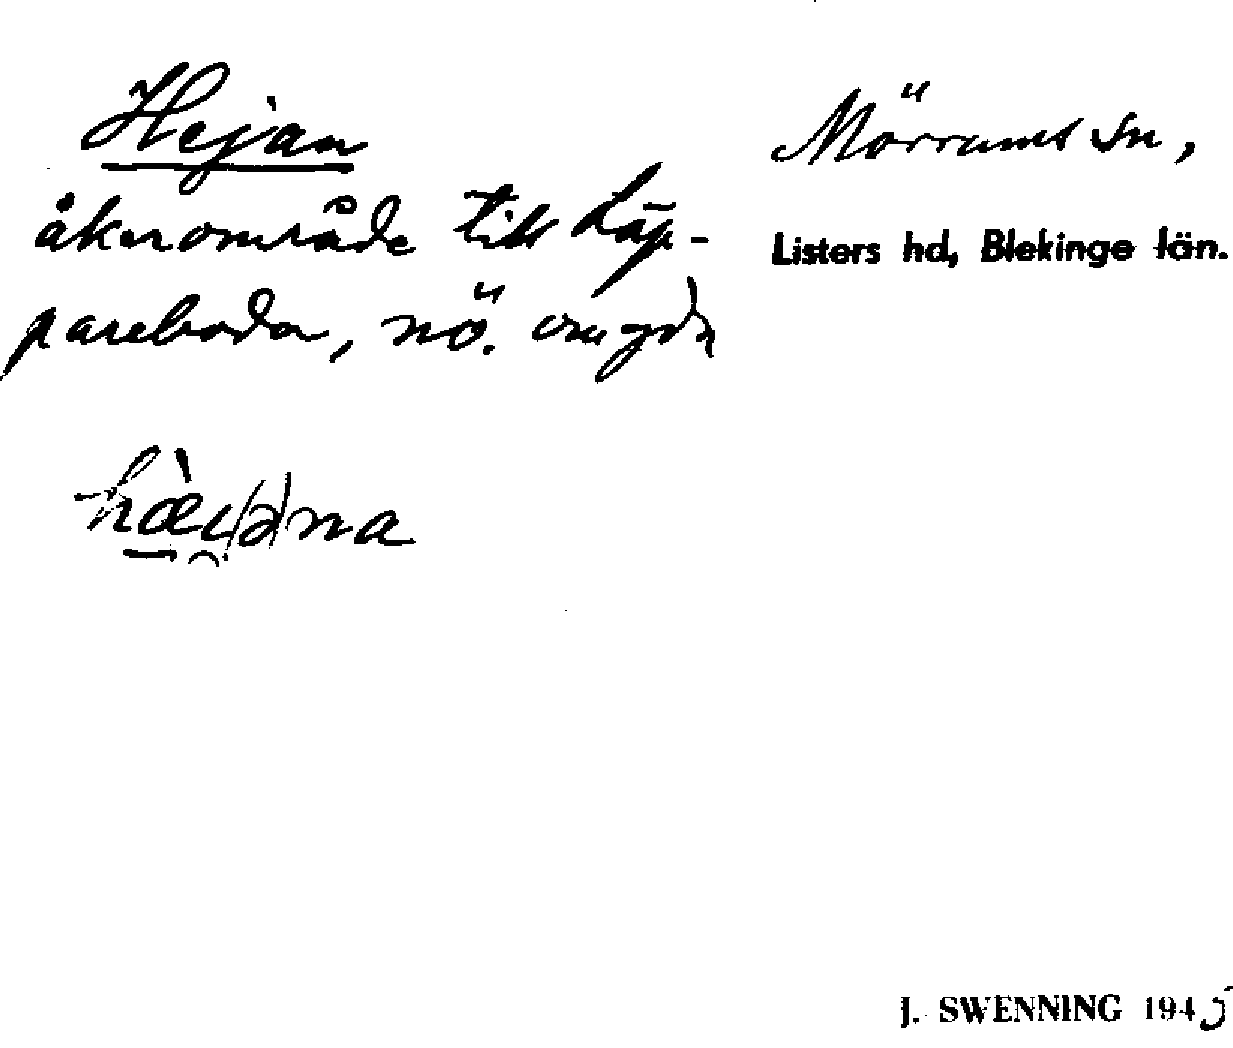 Hejan
åkerområde till Läp-
pareboda, nö. omgdn
hæ̀i̯(ə)na
Mörrums sn,
Listers hd, Blekinge län.
J. SWENNING 1945